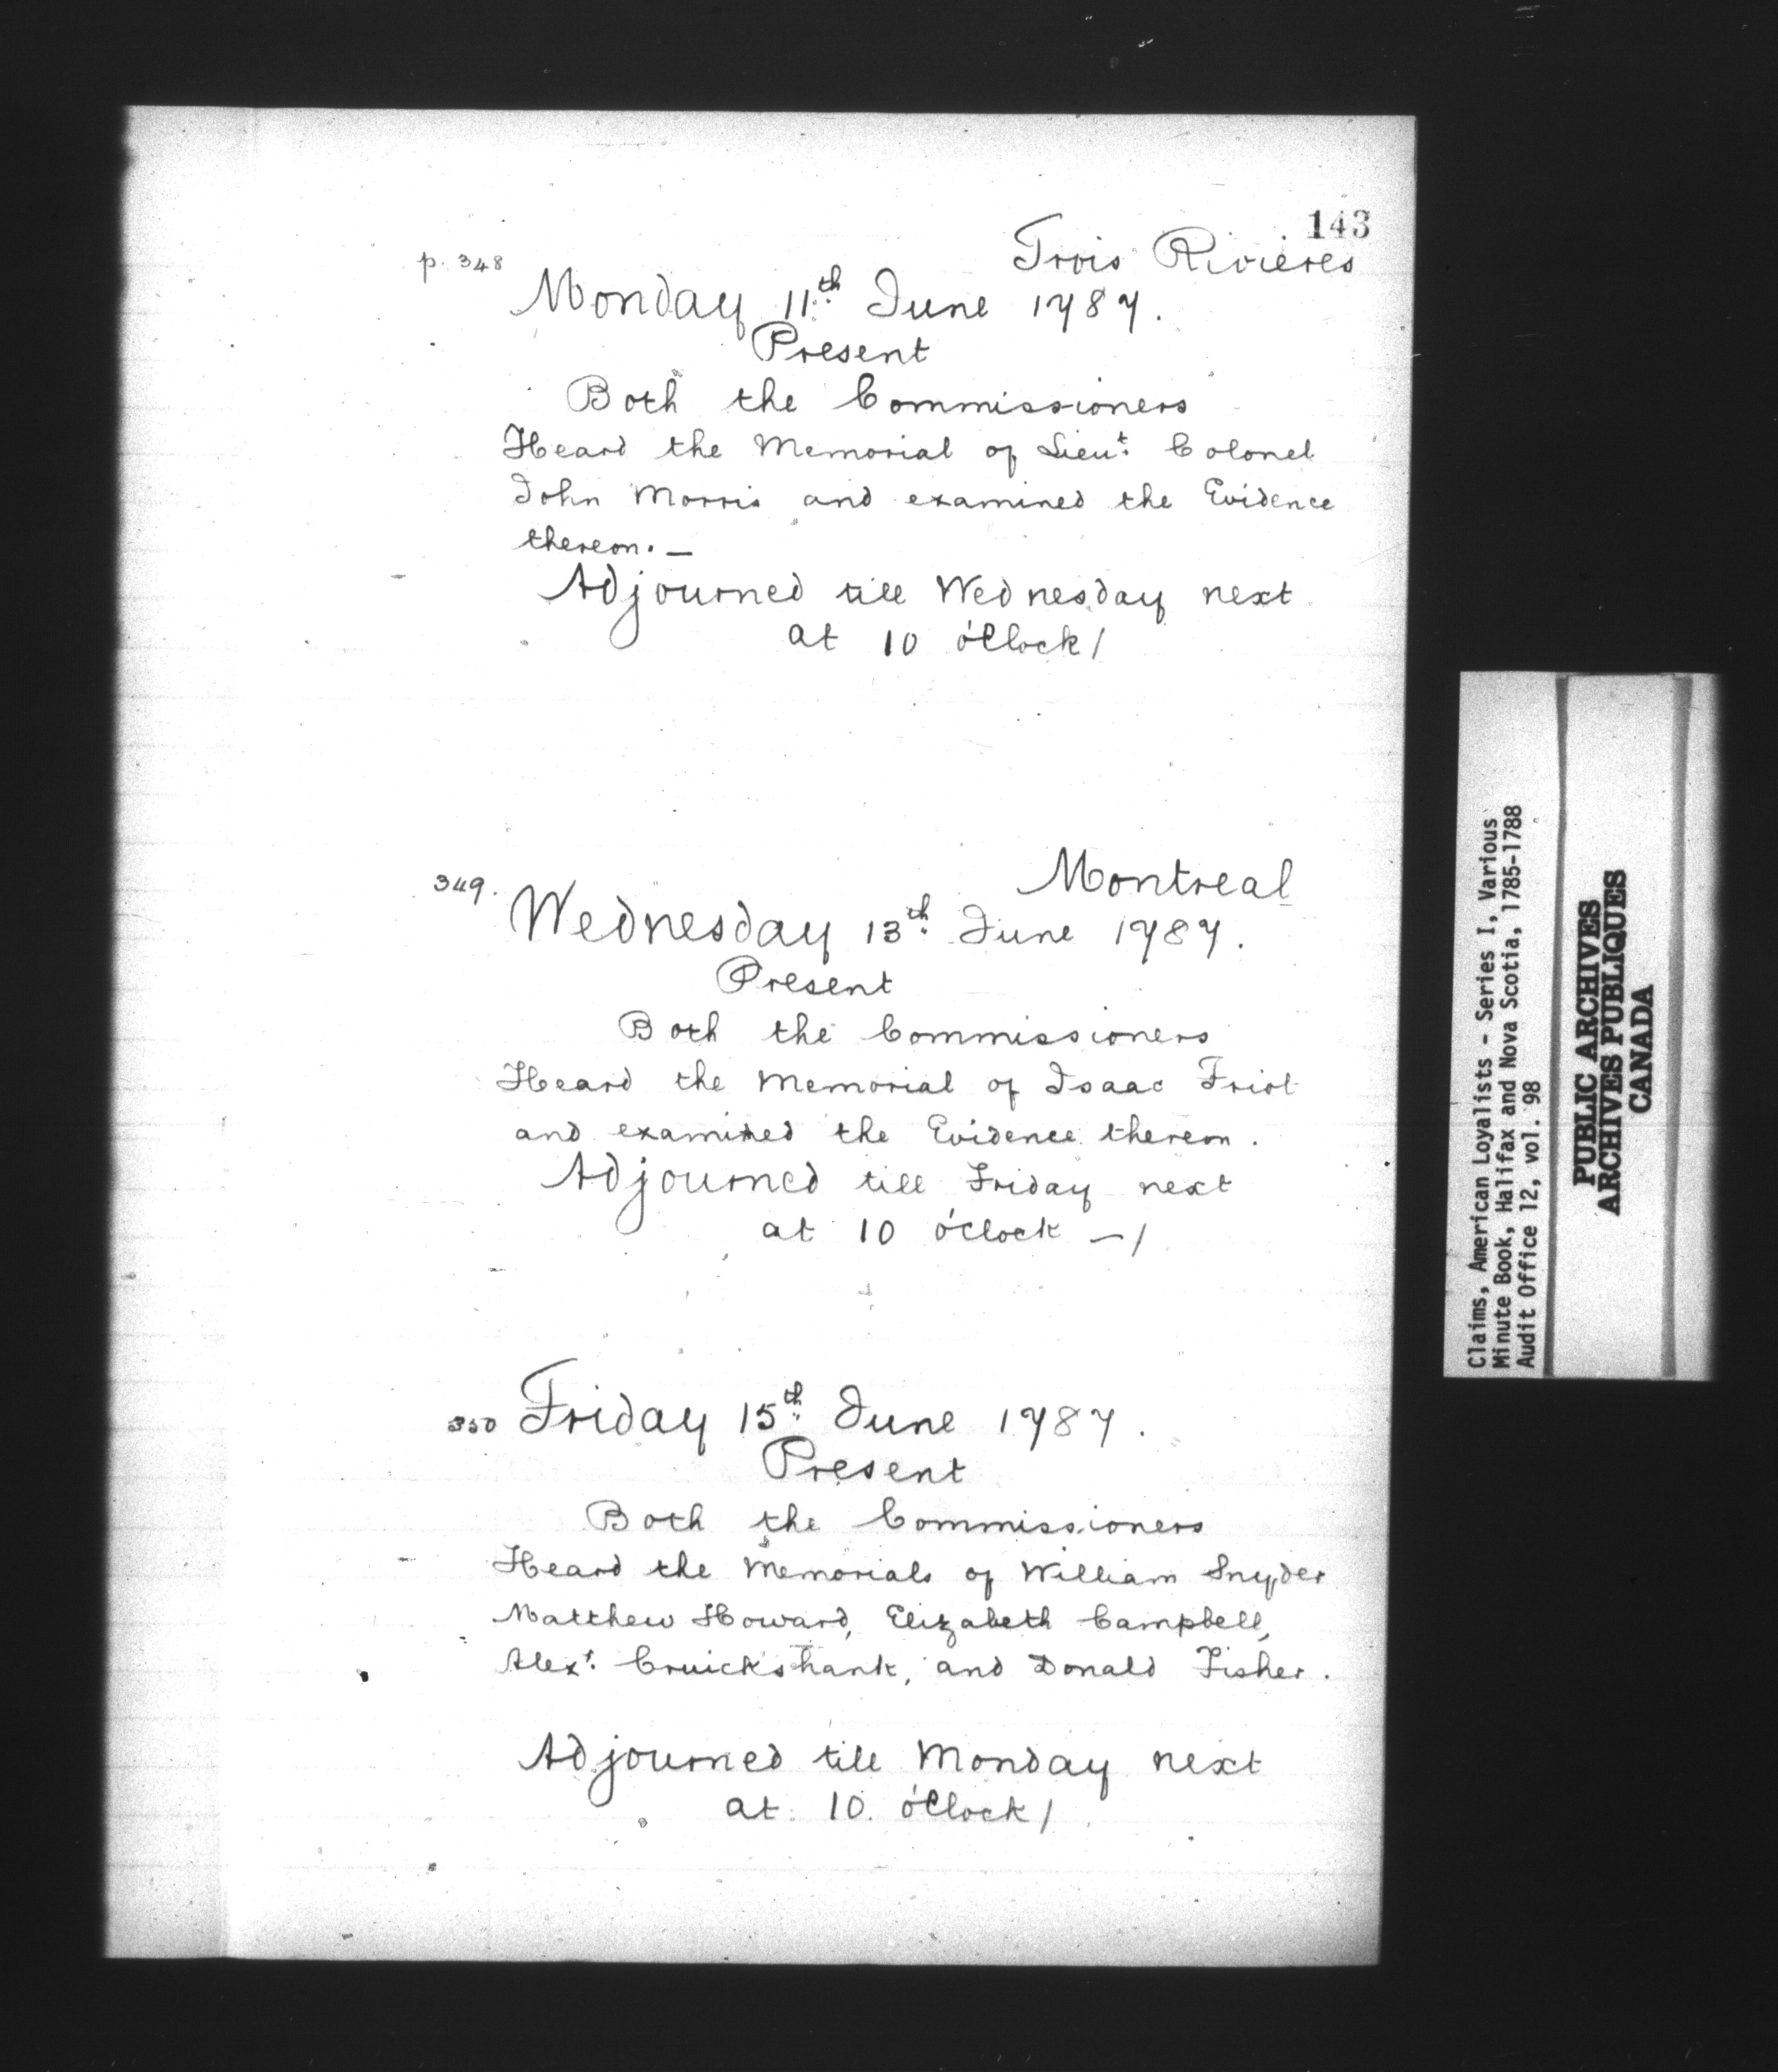 143
Trois Rivières
p. 348
Monday 11th June 1787.
Present
Both the Commissioners
Heard the Memorial of Lieut Colonel
John Morris and examined the Evidence
thereon. —
Adjourned till Wednesday next
at 10 o'Clock /
Montreal
349.
Wednesday 13th June 1787.
Present
Both the Commissioners
Heard the Memorial of Isaac Friot
and examined the Evidence thereon.
Adjourned till Friday next
at 10 o'Clock — /
350 Friday 15th June 1787.
Present
Both the Commissioners
Heard the Memorials of William Snyder
Matthew Howard, Elizabeth Campbell,
Alexr. Cruickshank, and Donald Fisher.
Adjourned till Monday next
at 10 o'Clock /
Claims, American Loyalists - Series I, Various
Minute Book, Halifax and Nova Scotia, 1785-1788
Audit Office 12, vol. 98
PUBLIC ARCHIVES
ARCHIVES PUBLIQUES
CANADA